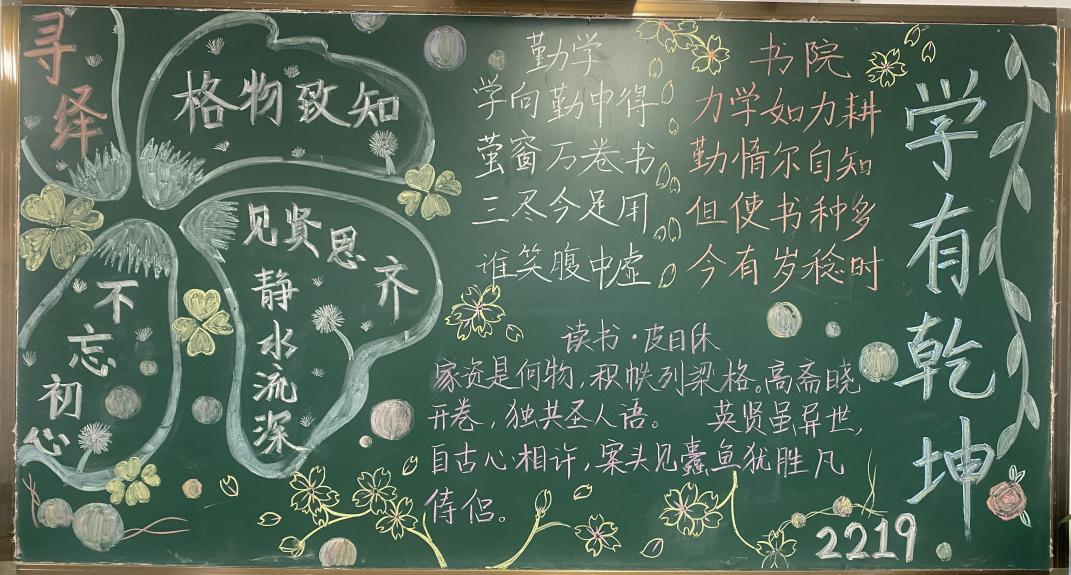 寻绎
格物致知
见贤思齐
静水流深
不忘初心
勤学
学向勤中得
萤窗万卷书
三尽今足用
谁笑腹中虚
书院
力学如力耕
勤惰尔自知
但使书种多
今有岁稔时
读书·皮日休
家资是何物,积帙列梁格。高斋晓
开卷,独共圣人语。 英贤虽异世,
自古心相许,案头见蠹鱼犹胜凡
侍侣。
学有乾坤
2219